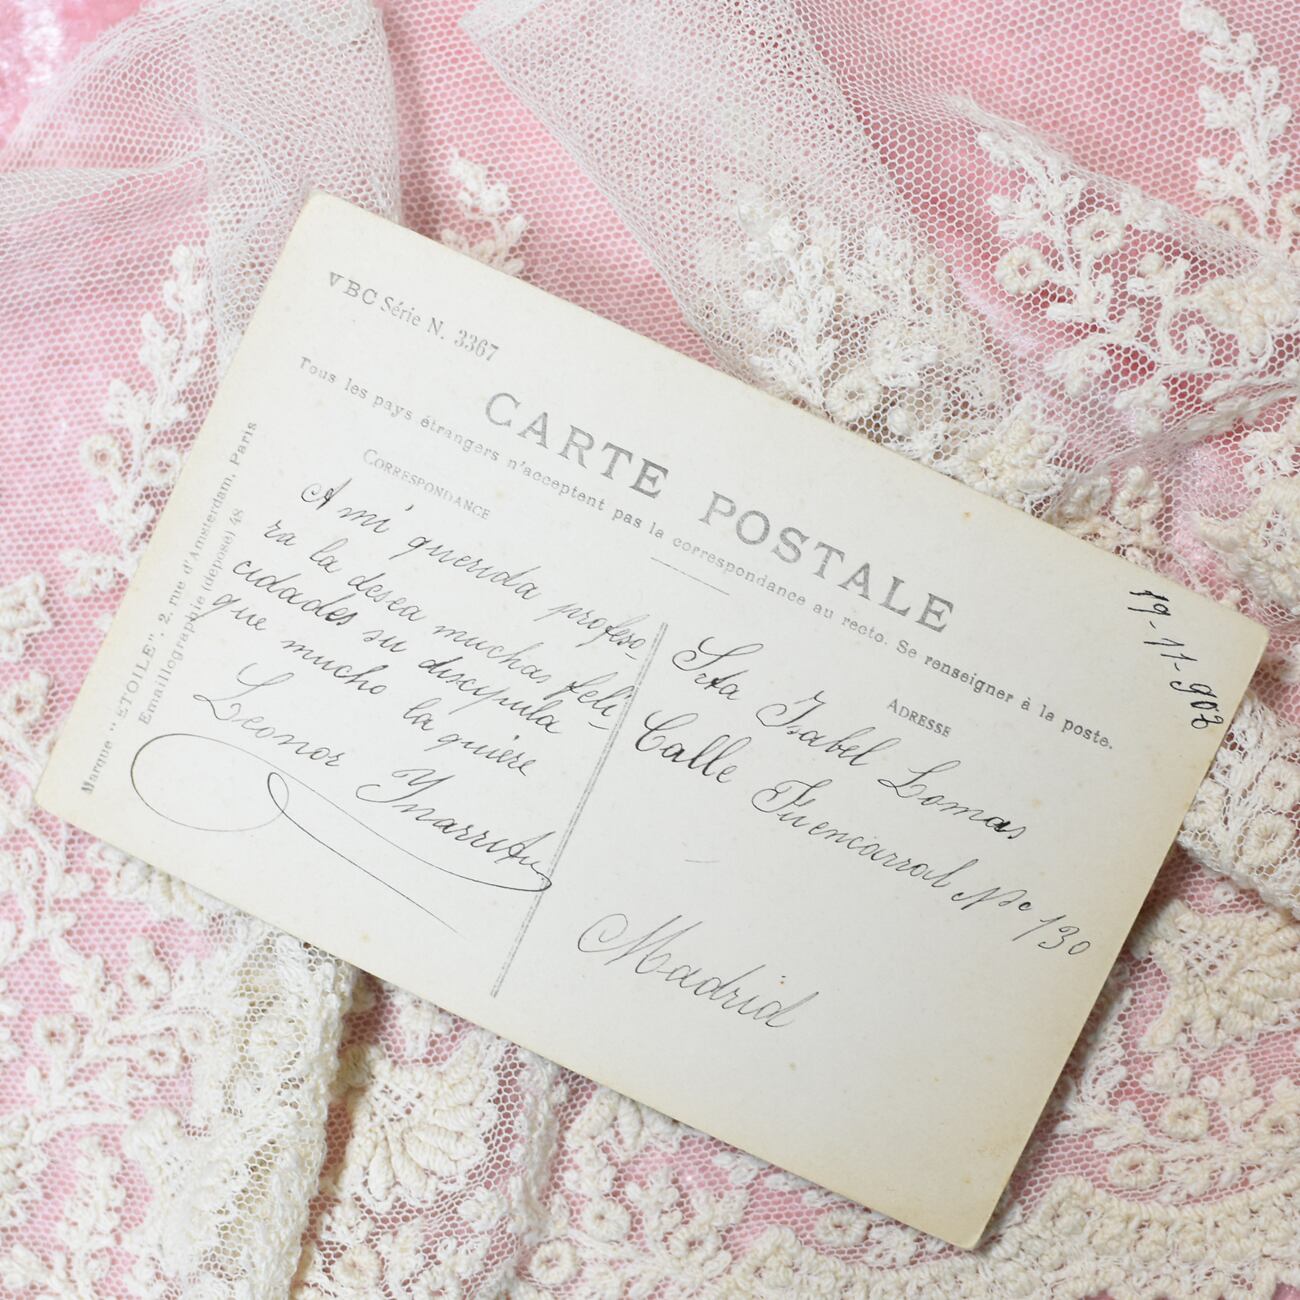 VBC Série N. 3367
CARTE POSTALE
Tous les pays étrangers n'acceptent pas la correspondance au recto. Se renseigner à la poste.
CORRESPONDANCE
A mi querida profeso-
ra la desea muchas feli-
cidades su discipula
que mucho la quiere
Leonor Ynarritu
ADRESSE
19-11-907
Srta Isabel Lomas
Calle Fuencarral No 130
Madrid
Marque "ETOILE", 2, rue d'Amsterdam, Paris
Emaillographie (déposé) 48